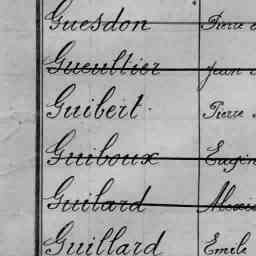 Guesdon Pierre
Gueultier Jean
Guibert Pierre
Guiboux Eugèn
Guilard Alexis
Guillard Emile